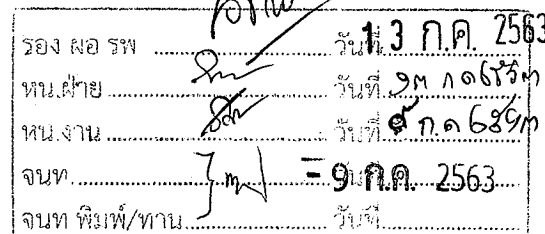 รอง ผอ รพ วันที่ 13 ก.ค. 2563
หน.ฝ่าย วันที่
หน.งาน วันที่
จนท. วันที่ - 9 ก.ค. 2563
จนท พิมพ์/ทาน วันที่